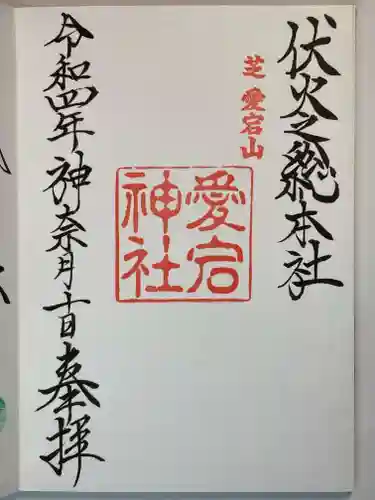 伏火之総本社
芝 愛宕山
愛宕
神社
令和四年神奈月十日奉拝